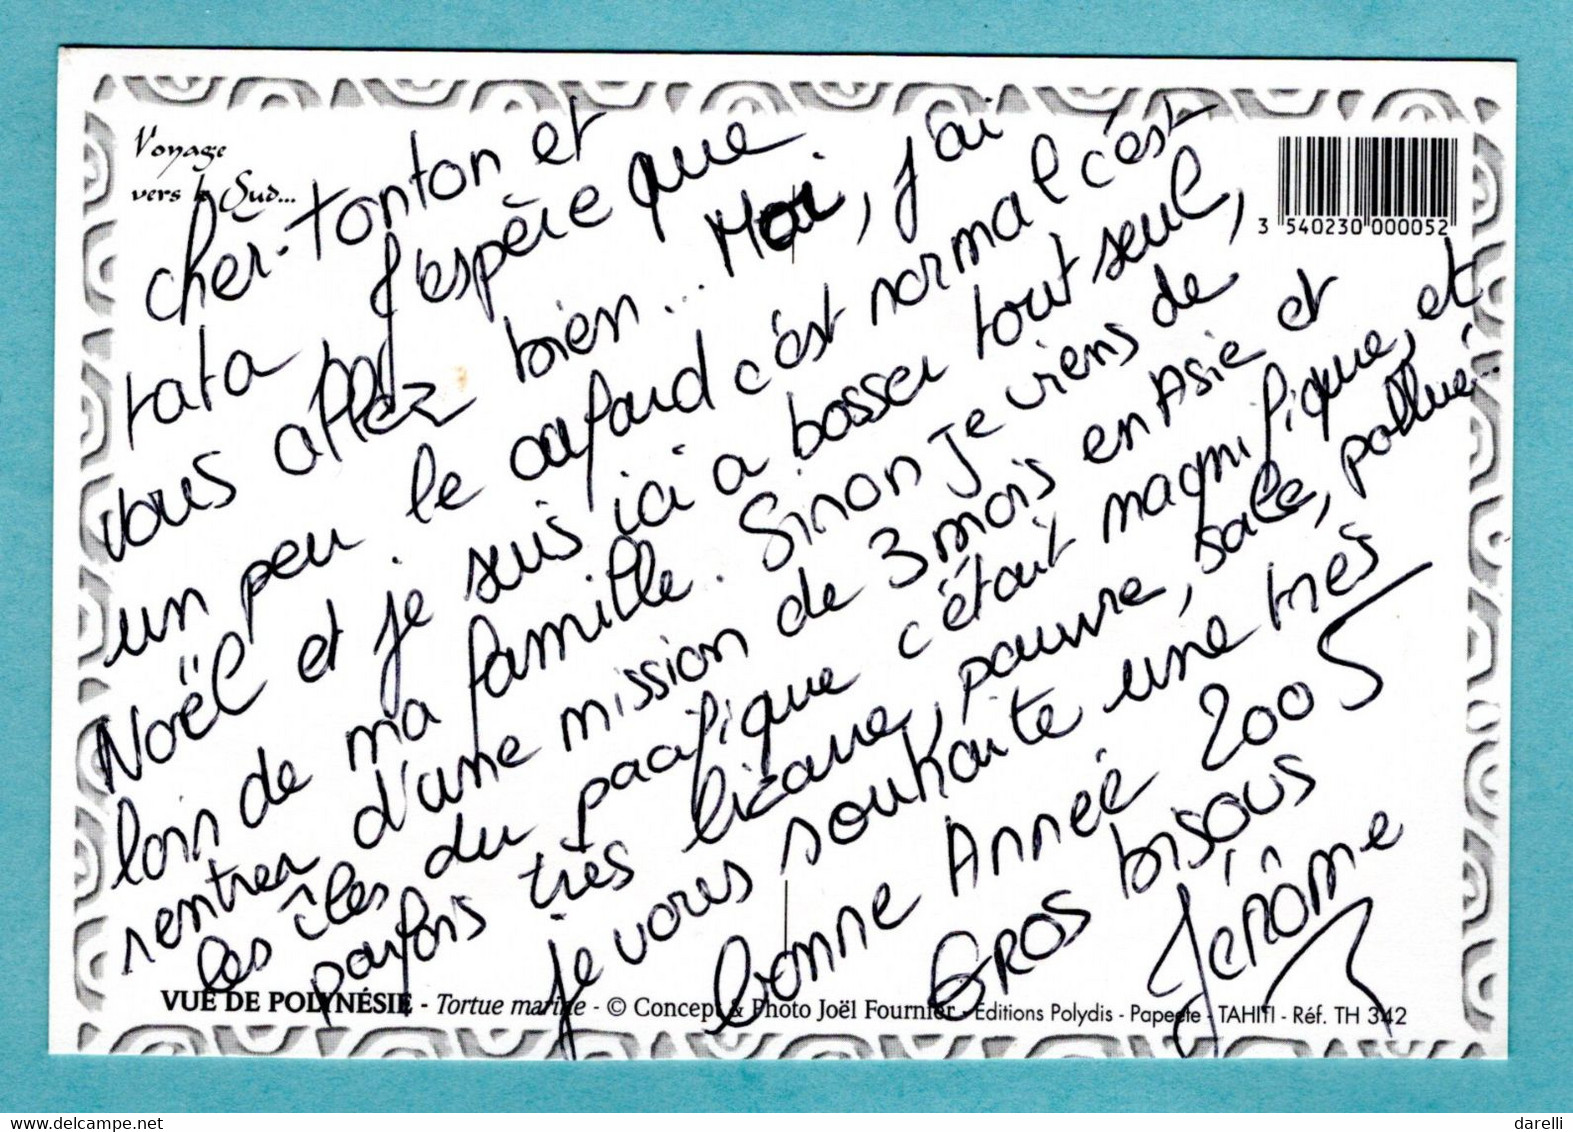 Voyage
vers le Sud...
3 540230 000052
cher-tonton et
tata J'espère que
vous allez bien... Moi, j'ai
un peu le cafard c'est normal c'est
Noël et je suis ici a bosser tout seul,
loin de ma famille. Sinon je viens de
rentrer d'une mission de 3 mois en Asie et
les îles du pacifique c'était magnifique, et
parfois très bizarre, pauvre, sale, pollué...
je vous souhaite une très
bonne Année 2005
GROS bisous
Jérôme
VUE DE POLYNÉSIE - Tortue marine - © Concept & Photo Joël Fournier - Editions Polydis - Papeete - TAHITI - Réf. TH 342
darelli